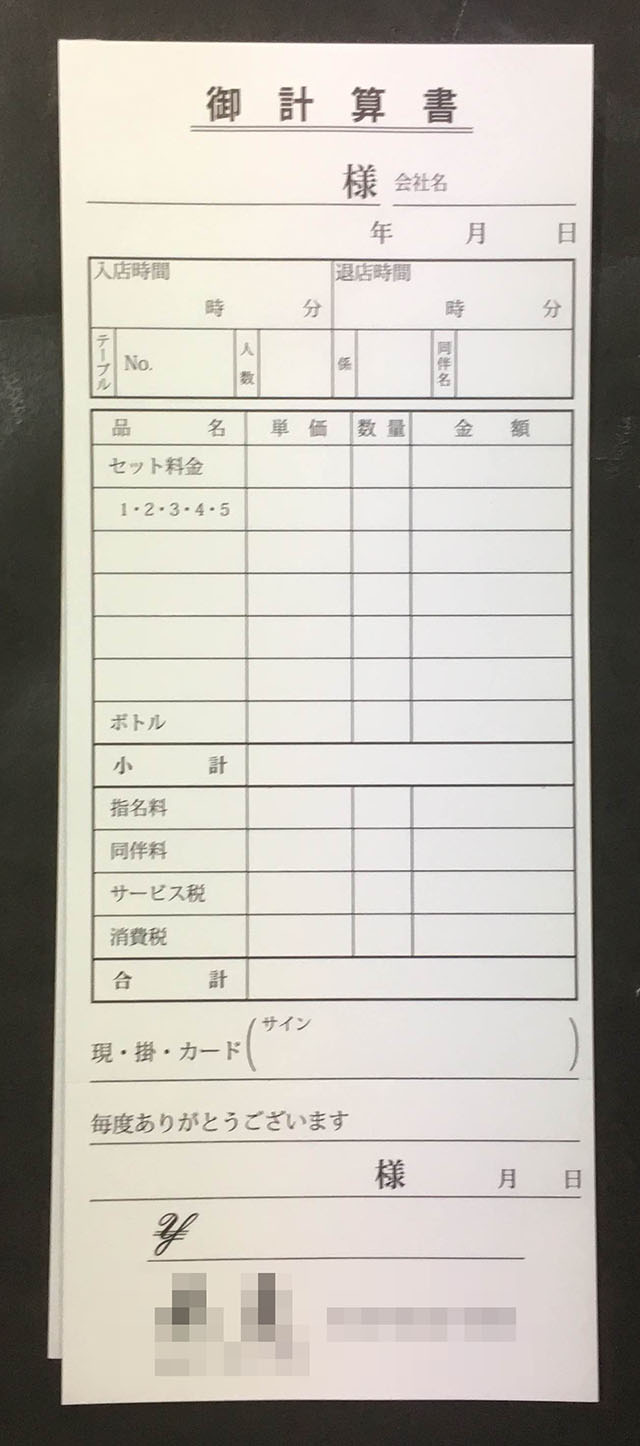 御計算書
様 会社名
年 月 日
入店時間 退店時間
時 分 時 分
テーブル No. 人数 係 同伴名
品名 単価 数量 金額
セット料金
1・2・3・4・5
ボトル
小計
指名料
同伴料
サービス税
消費税
合計
現・掛・カード(サイン )
毎度ありがとうございます
様 月 日
¥